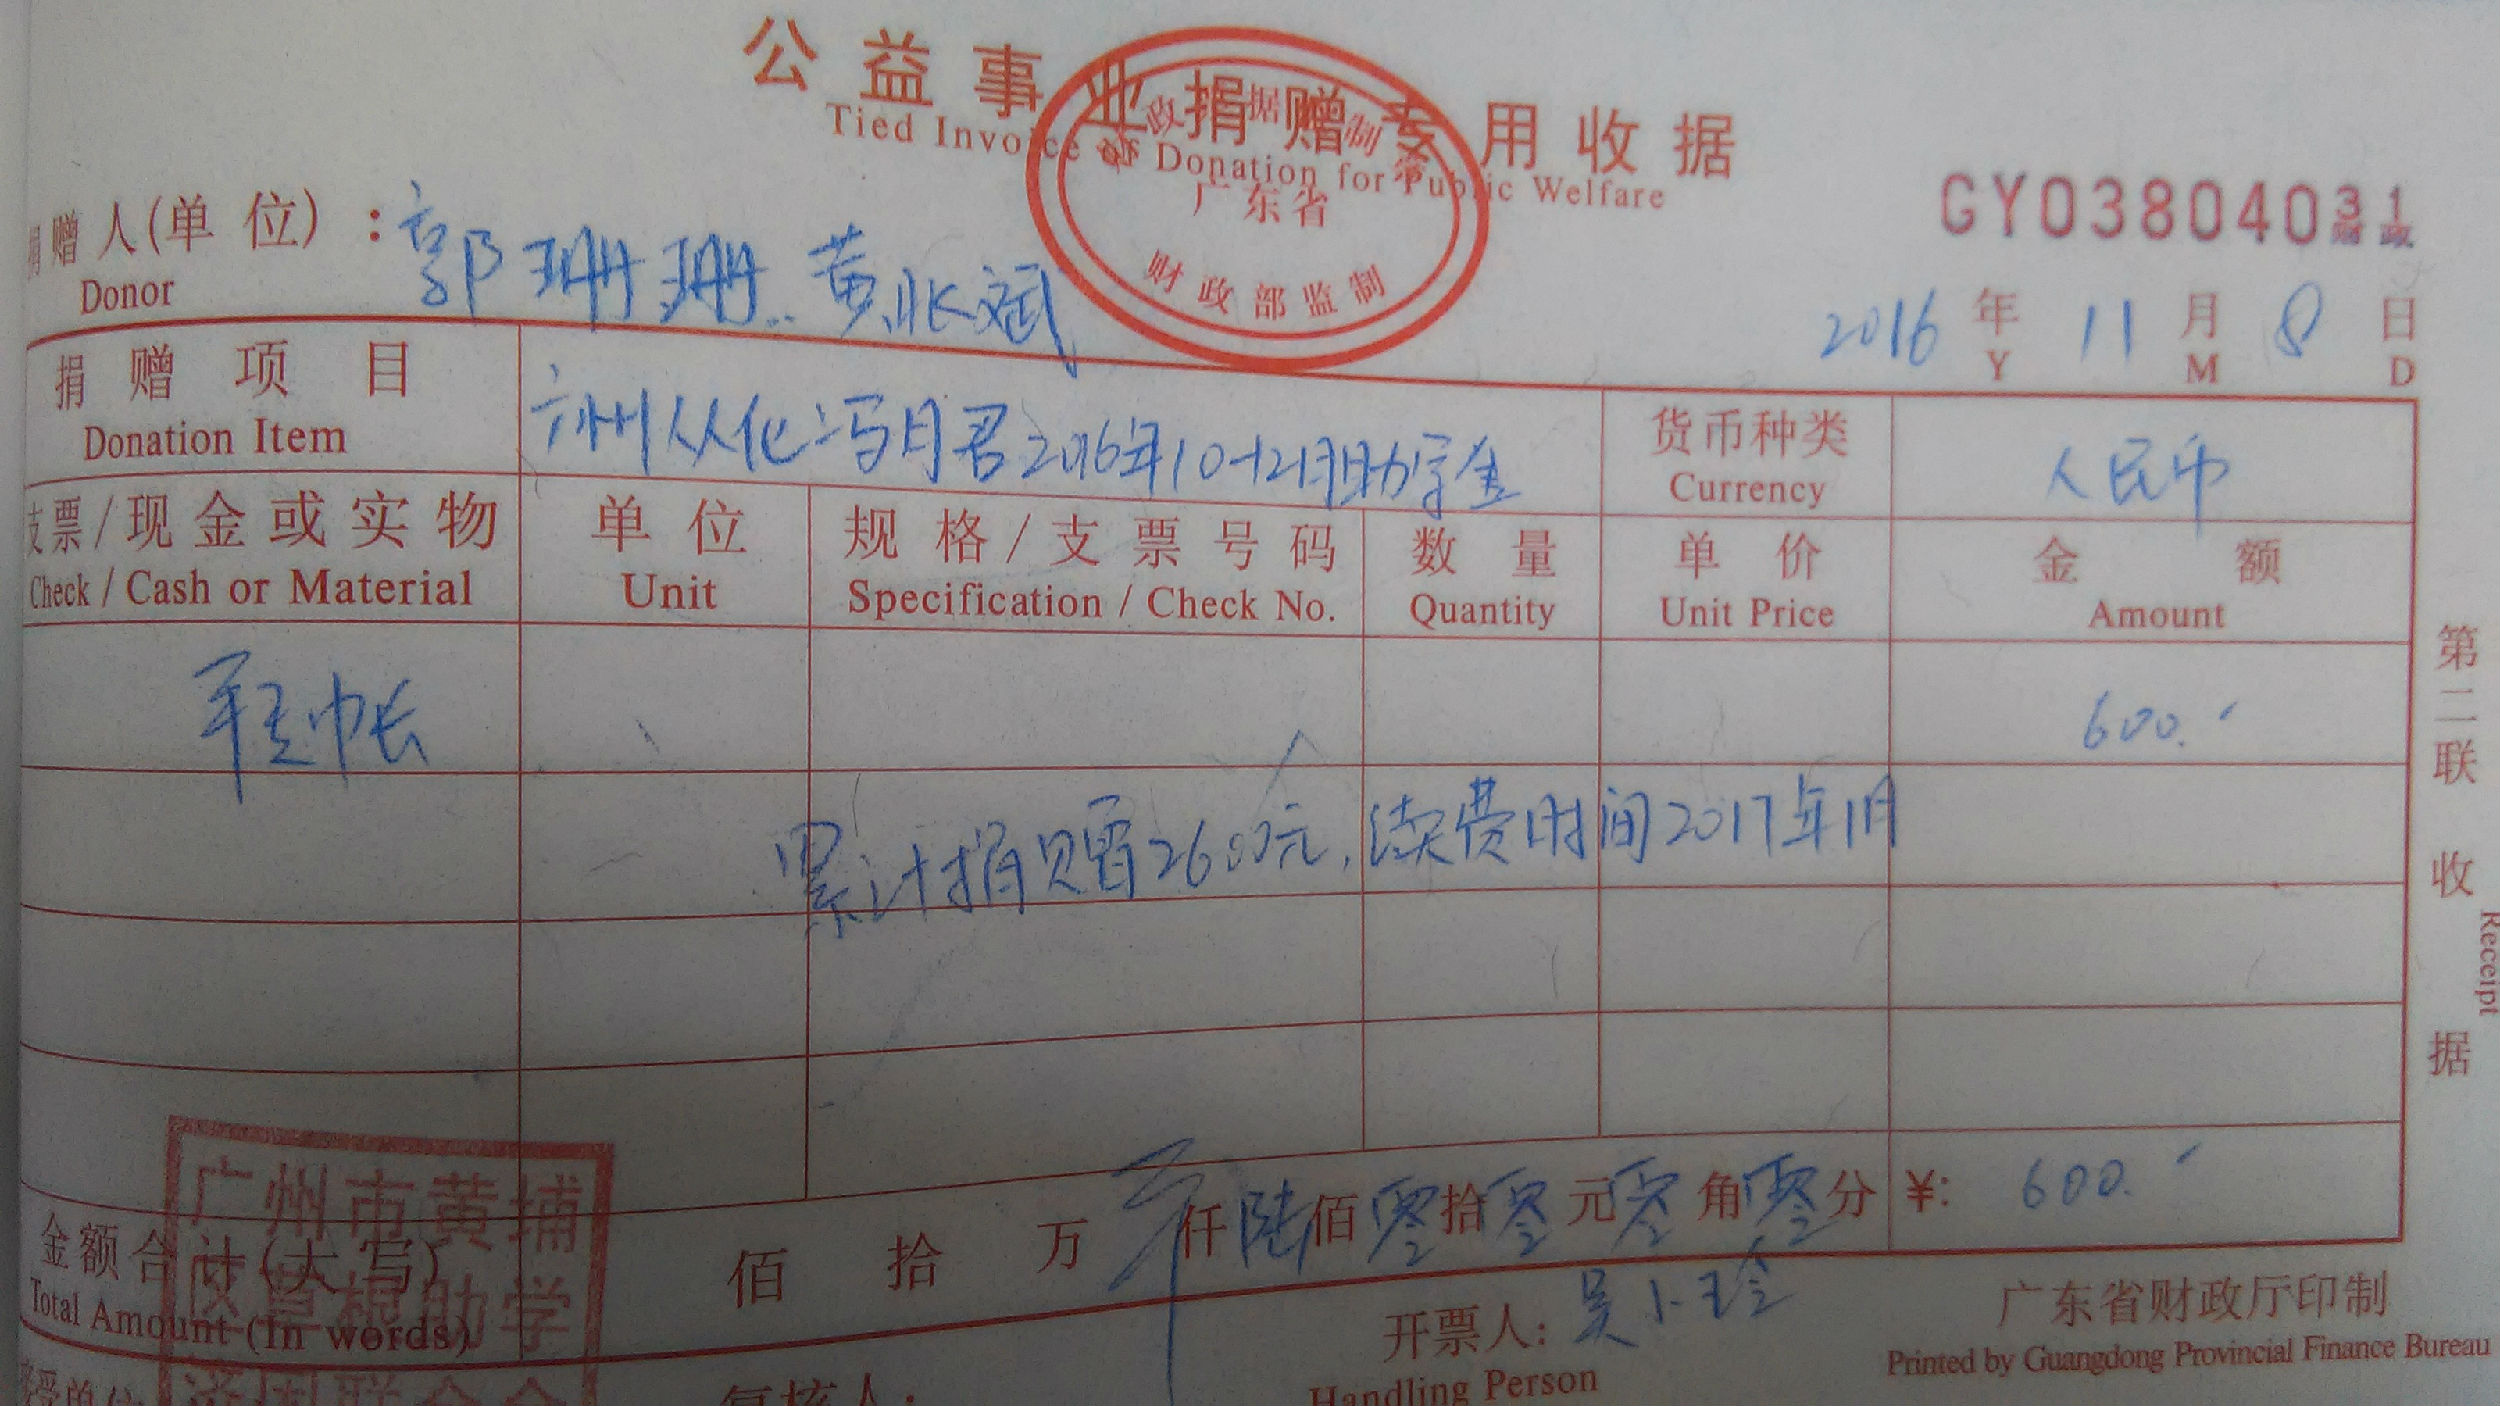 公益事业捐赠专用收据
Tied Invoice of Donation for Public Welfare
财政票据监制章
广东省
财政部监制
GY03804031
捐赠人(单位):郭珊珊、黄怅斌
Donor
2016年11月8日
Y M D
捐赠项目 广州从化冯月君2016年10-12月助学金 货币种类 人民币
Donation Item Currency
支票/现金或实物 单位 规格/支票号码 数量 单价 金额
Check / Cash or Material Unit Specification / Check No. Quantity Unit Price Amount
600.
累计捐赠2600元,续费时间2017年1月
第二联 收据
Receipt
金额合计(大写) 佰 拾 万 仟陆佰零拾零元零角零分 ¥: 600.
Total Amount (In words)
广州市黄埔
区草根助学
济困联合会
开票人:吴小玲
Handling Person
复核人:
广东省财政厅印制
Printed by Guangdong Provincial Finance Bureau